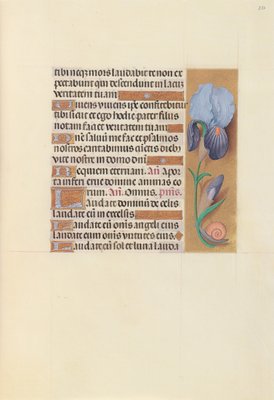 tibi neq3 mors laudabit te non ex
pectabunt qui descendunt in lacū
veritatem tuam
Vivens vivens ipe confitebitur
tibi sicut et ego hodie pater filiis
notam faciet veritatem tuam
Dn̄e salvū me fac et psalmos
nostros cantabimus cūctis dieb9
vite nostre in domo dn̄i
Requiem eternam. An̄ A por
ta inferi erue domine animas eo
rum. An̄. Omnis. ps̄.
Laudate dominū de celis
laudate eū in excelsis
Laudate eum om̄s angeli eius
laudate eum om̄s virtutes eius
Laudate eū sol et luna lauda